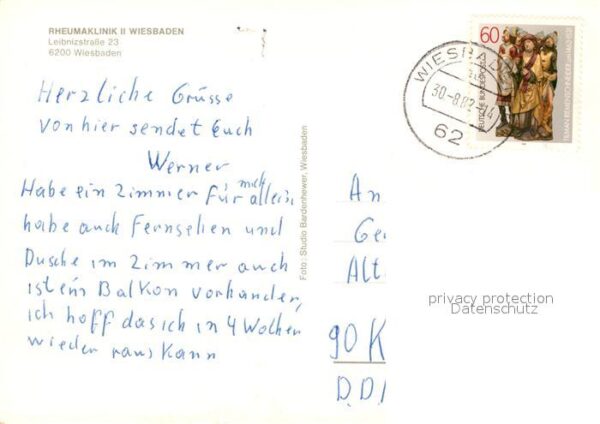 RHEUMAKLINIK II WIESBADEN
Leibnizstraße 23
6200 Wiesbaden
60
DEUTSCHE BUNDESPOST
TILMAN RIEMENSCHNEIDER
WIESBADEN
30.-8.82
62
Herzliche Grüsse
von hier sendet Euch
Werner
Habe ein Zimmer für mich allein,
habe auch Fernsehen und
Dusche im Zimmer auch
ist ein Balkon vorhanden,
ich hoff das ich in 4 Wochen
wieder raus kann
Foto: Studio Bardenhewer, Wiesbaden
An
Ge
Alt
90 K
D.D.
privacy protection
Datenschutz